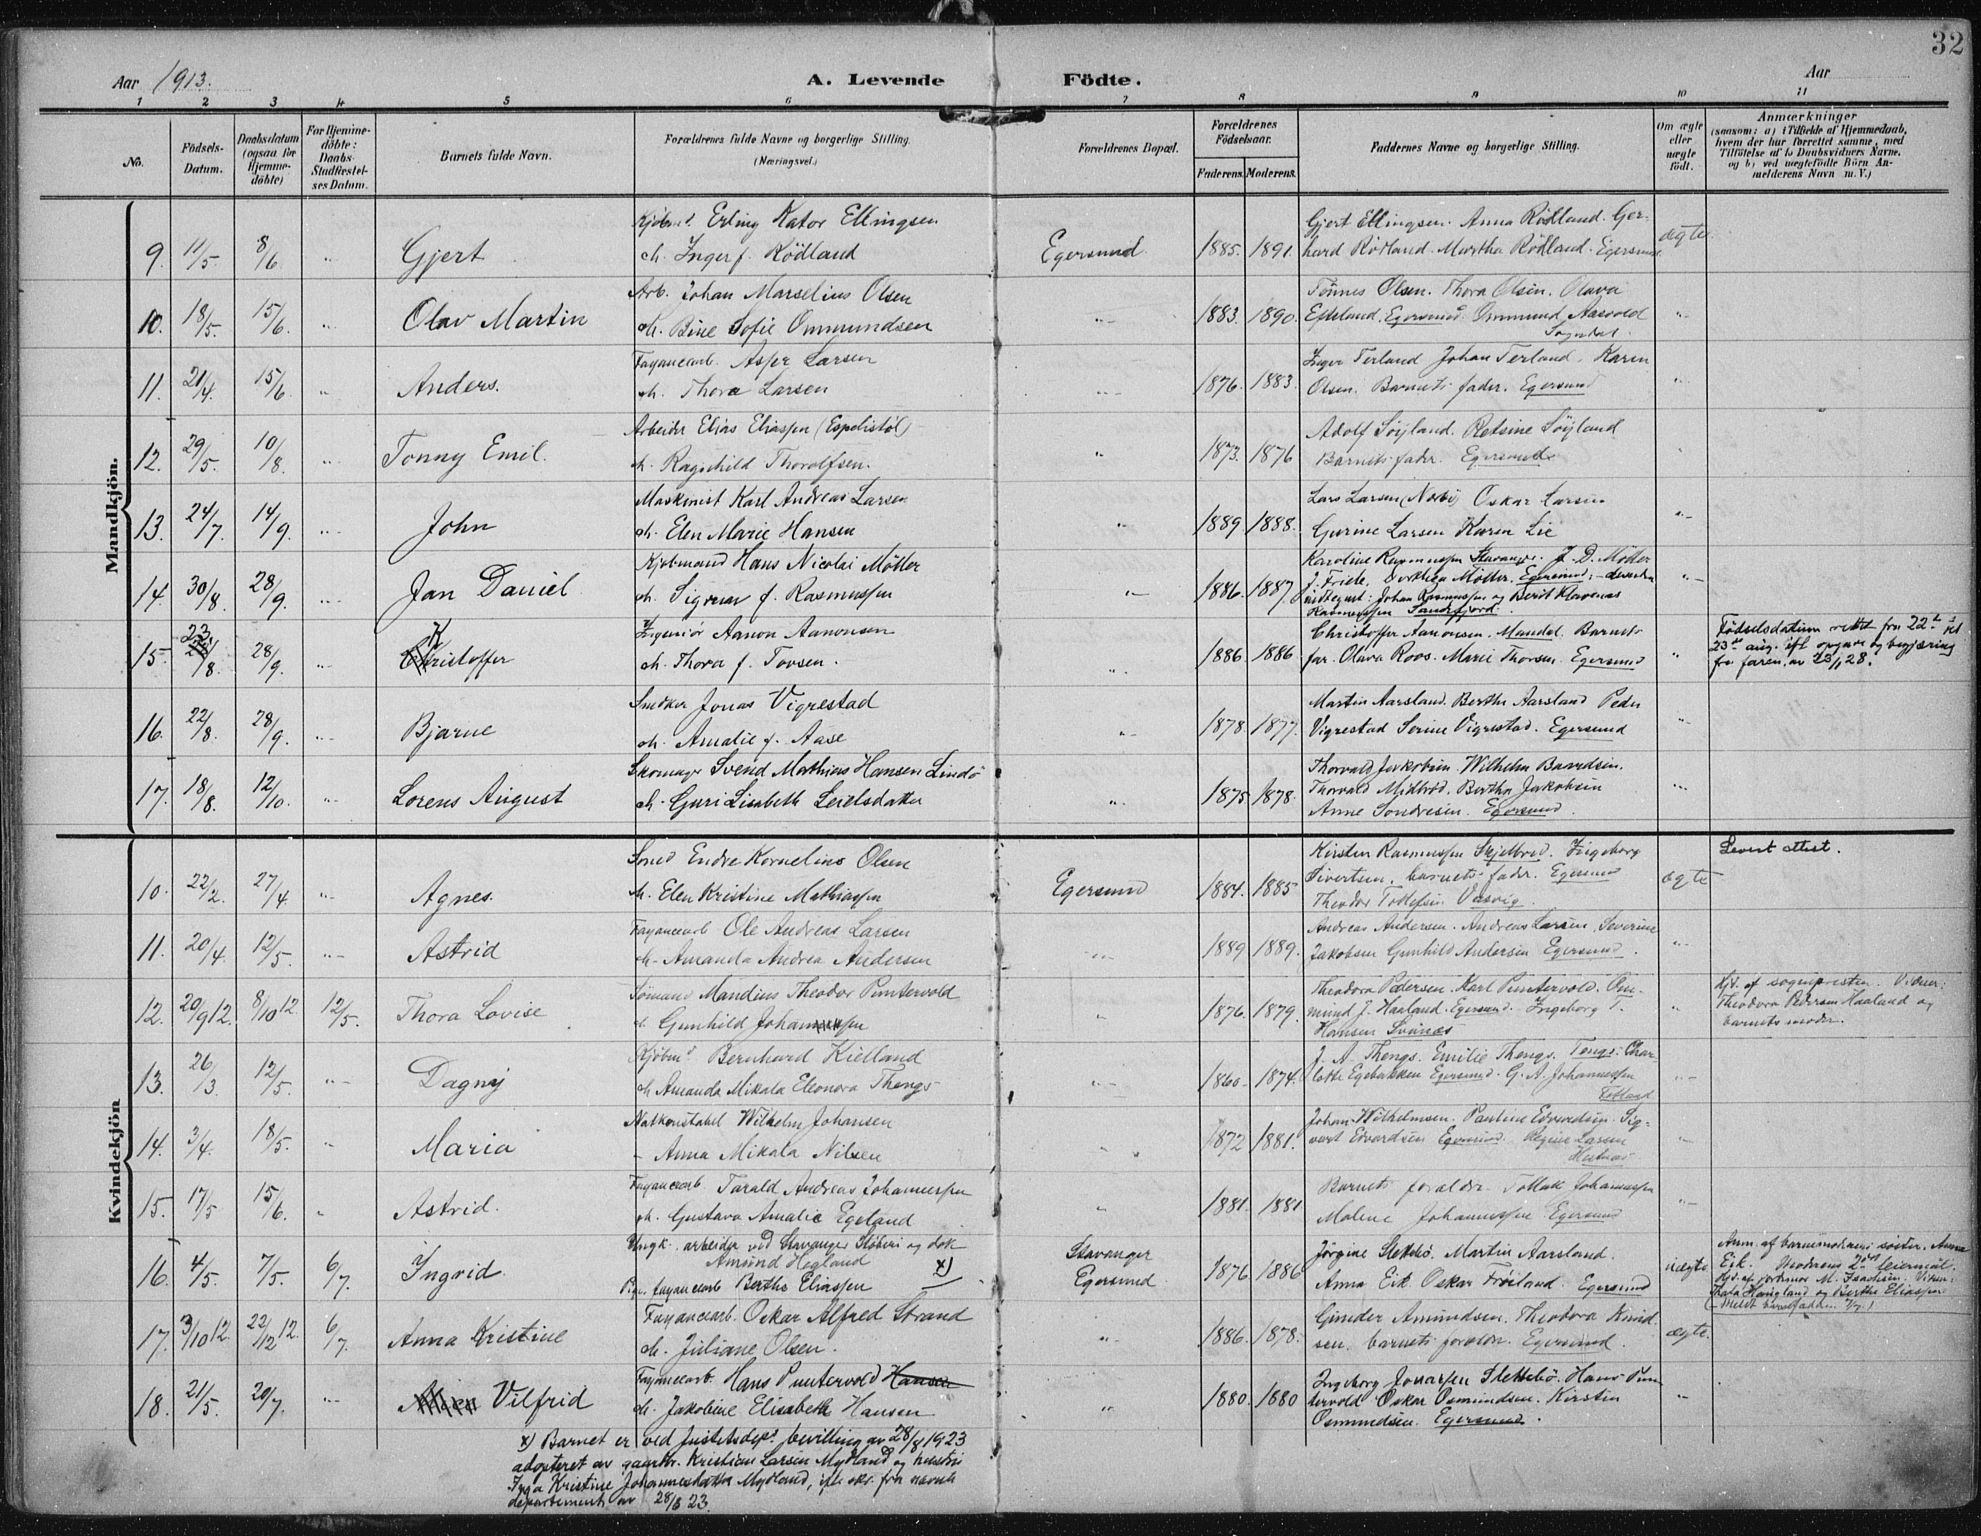 32
Aar 1913.
A. Levende Födte.
Aar
1 2 3 4 5 6 7 8 9 10 11
No.
Födsels-Datum.
Daabsdatum (ogsaa for Hjemme-döbte)
For Hjemme-döbte: Daabs-Stadfæstel-ses Datum.
Barnets fulde Navn.
Forældrenes fulde Navne og borgerlige Stilling.
(Næringsvei.)
Forældrenes Bopæl.
Forældrenes Födselsaar.
Faderens. Moderens.
Faddernes Navne og borgerlige Stilling.
Om ægte eller uægte födt.
Anmærkninger
(saasom: a) i Tilfælde af Hjemmedaab, hvem der har forrettet samme, med Tilföielse af to Daabsvidners Navne, og b) ved uægtefödte Börn An-melderens Navn m. V.)
Mandkjön.
9. 11/5 8/6 Gjert
Kjöbmd Erling Kator Ellingsen
Inger f. Rödland
Egersund 1885. 1891.
Gjert Ellingsen. Anna Rödland. Ger-
hard Rödland. Martha Rödland. Egersund
ægte
10. 18/5 15/6 Olav Martin
Arb. Johan Marselius Olsen
Bine Sofie Ommundsen
1883. 1890.
Tönnes Olsen. Thora Olsen. Olava
Egersund. Ommund Aasvold
Sogndal.
11. 21/4 15/6 Anders.
Fayancearb. Larsen
Thora Larsen
1876. 1883.
Inger Terland Johan Terland. Karen
Olsen. Barnets fader. Egersund
12. 29/5 10/8 Tonny Emil.
Arbeider Elias Eliassen (Espelistöl)
Ragnhild Thorolfsen.
1873. 1876
Adolf Söyland. Söyland
Barnets fader. Egersund
13. 24/7 14/9 John
Maskinist Karl Andreas Larsen
Elen Marie Hansen
1889 1888.
Lars Larsen Oskar Larsen
Gurine Larsen Karen Lie
14. 30/8. 28/9. Jan Daniel
Kjøbmand Hans Nicolai Møller
f. Rasmussen
1886. 1887.
Karoline Rasmussen Stavanger. J. D. Møller
Møller. Egersund;
Johan Rasmussen og Berit
Rasmussen Sandefjord.
15. 23/8 28/9. Kristoffer
Ingeniør Aanon Aanonsen
Thora f. Tovsen.
1886. 1886
Christoffer Aanonsen. Mandal. Barnets
far. Olava Roos. Marie Thorsen. Egersund
Fødselsdatum rettet fra 22de til
23de aug. efl. opgave og begjæring
fra faren.
16. 22/8. 28/9. Bjarne
Snedker Jonas Vigrestad
Amalie f. Aase
1878. 1877.
Martin Aarsland. Berthe Aarsland Peder
Vigrestad Serine Vigrestad. Egersund
17. 18/8. 12/10. Lorens August
Skomager Svend Mathias Hansen Lindø
Guri Lisabeth
1875 1878.
Thorvald Jakobsen Wilhelm
Thorvald Midbröd. Bertha Jakobsen
Anne Sondresen. Egersund.
Kvindekjön
10. 22/2. 27/4. Agnes.
Smed Endre Kornelius Olsen
Elen Kristine Mathiassen
Egersund 1884. 1885
Kirsten Rasmussen Skjelbred. Ingeborg
Sivertsen. barnets fader. Egersund
Theodor Tollefsen
ægte
Levert attest.
11. 20/4. 12/5. Astrid
Fayancearb Ole Andreas Larsen
Amanda Andrea Andersen
1889 1889.
Andreas Andersen. Andreas Larsen. Severine
Jakobsen Gunhild Andersen Egersund.
12. 20/9 12. 8/10 12. 12/5. Thora Lovise
Sömand Mandius Theodor Puntervold
Gunhild
1876. 1879.
Theodora Pedersen. Karl Puntervold. Om-
mund J. Haaland. Egersund. Ingeborg T.
Hansen Svanes
Hjd. af sognepresten. Vidner:
Theodora Pedersen Haaland og
barnets moder.
13. 26/3 12/5. Dagny
Kjöbmd Bernhard Kielland
Amanda Mikala Eleonora Thengs
1860 1874.
J. A. Thengs. Emilie Thengs. Tengs. Char-
lotte Egebakken Egersund. G. A. Johannessen
14. 3/4. 18/5. Maria
Natkonstabel Wilhelm Johansen
Anna Mikala Nilsen
1872 1881.
Johan Wilhelmsen. Pauline Edvardsen. Sig-
vart Edvardsen Egersund. Regine Larsen
15. 17/5 15/6. Astrid.
Fayancearb Tarald Andreas Johannessen
Gustava Amalie Egeland
1881. 1881
Barnets forældre. Tollak Johannessen
Malene Johannessen Egersund
16. 4/5. 7/5. 6/7. Ingvid
Ungk. arbeider ved Stavanger Støberi og dok
Amund Hegland x)
Pige. fayancearb Berthe Eliassen
Stavanger
Egersund
1876. 1886
Jörgine Slettebö. Martin Aarsland.
Anna Eik Oskar Fröiland. Egersund
uægte
Anm. af barnemoderens søster. Anna
Eik. Moderens 2det leiermaal.
17. 3/10 12. 22/12 12. 6/7. Anna Kristine
Fayancearb. Oskar Alfred Strand
Juliane Olsen.
1886. 1878.
Gunder Amundsen. Theodora Knud-
sen. barnets forældre. Egersund.
ægte.
18. 21/5. 20/7. Vilfrid
Fayancearb. Hans Puntervold Hansen
Jakobine Elisabeth Hansen
1880. 1880
Ingeborg Jonassen Slettebö. Hans Pun-
tervold Oskar Osmundsen. Kirstin
Osmundsen. Egersund.
x) Barnet er ved Justitsdepts bevilling av 28/8 1923
adopteret av gaardbr. Kristian Larsen Mydland og hustru
Inga Kristine Johannesdatter Mydland, efter skr. fra nævnte
departement av 28/8 23.